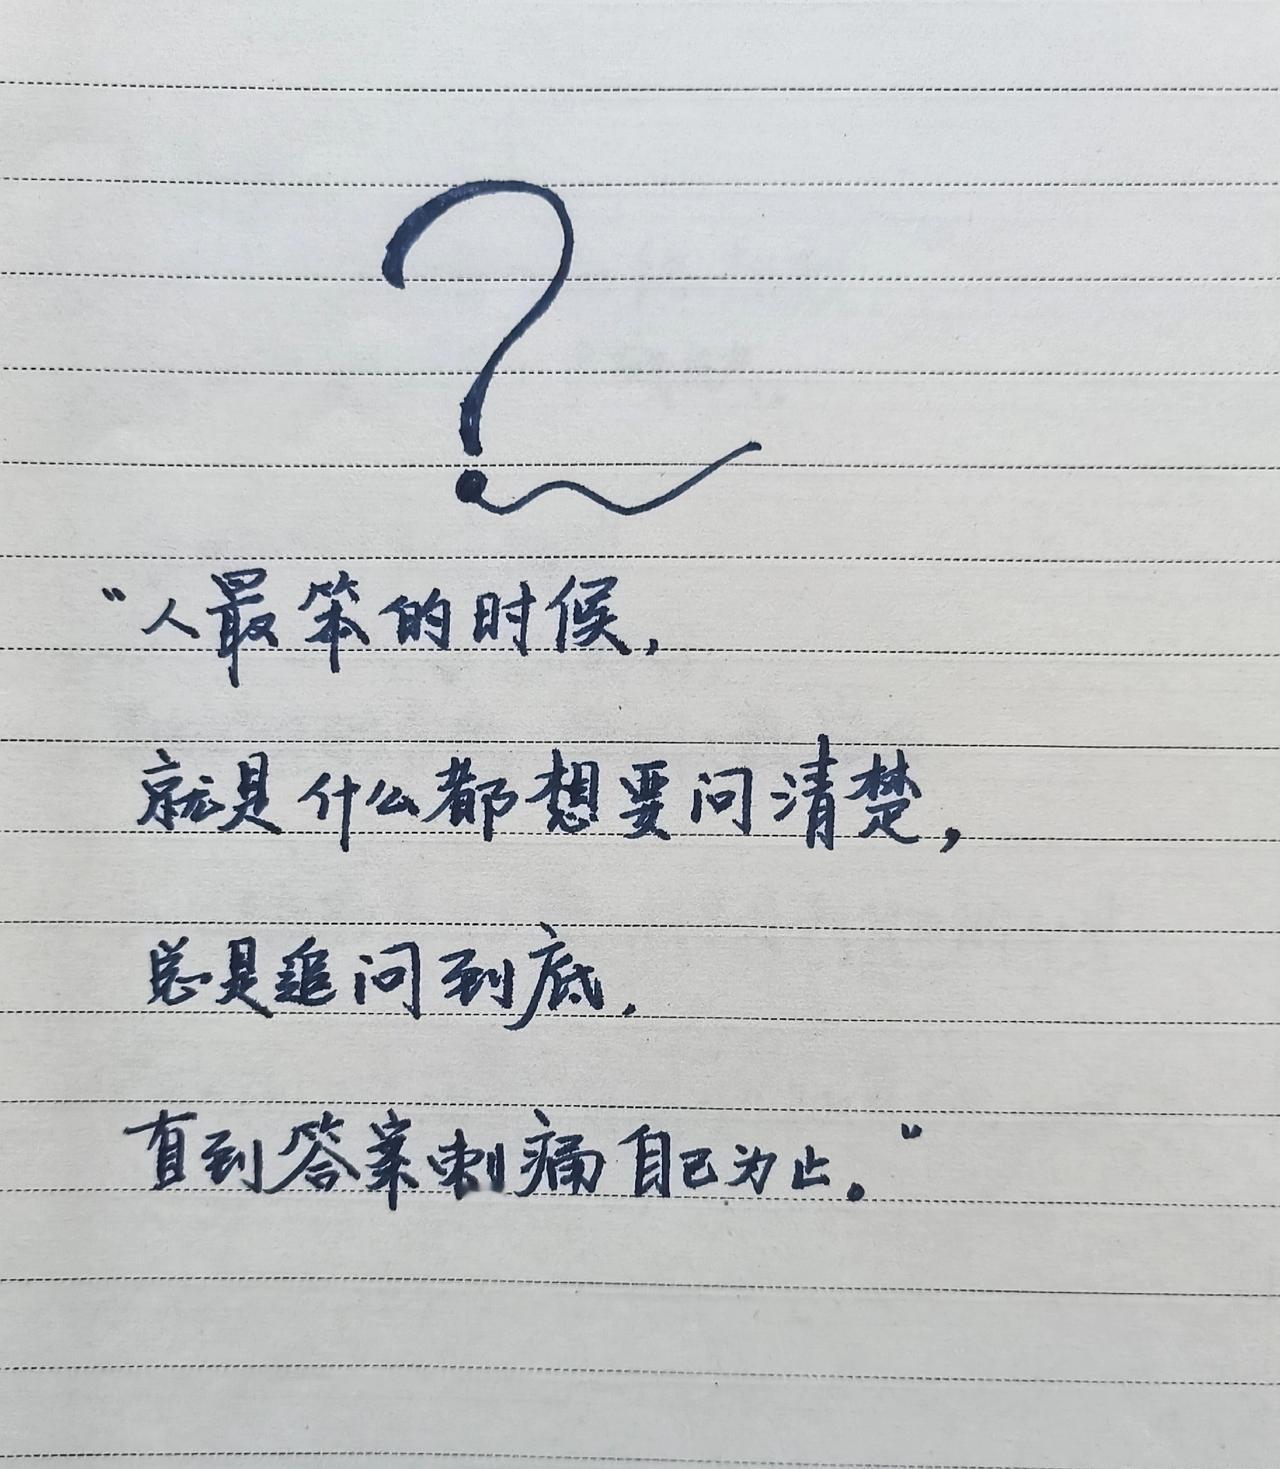 ?
“人最笨的时候,
就是什么都想要问清楚,
总是追问到底,
直到答案刺痛自己为止。”